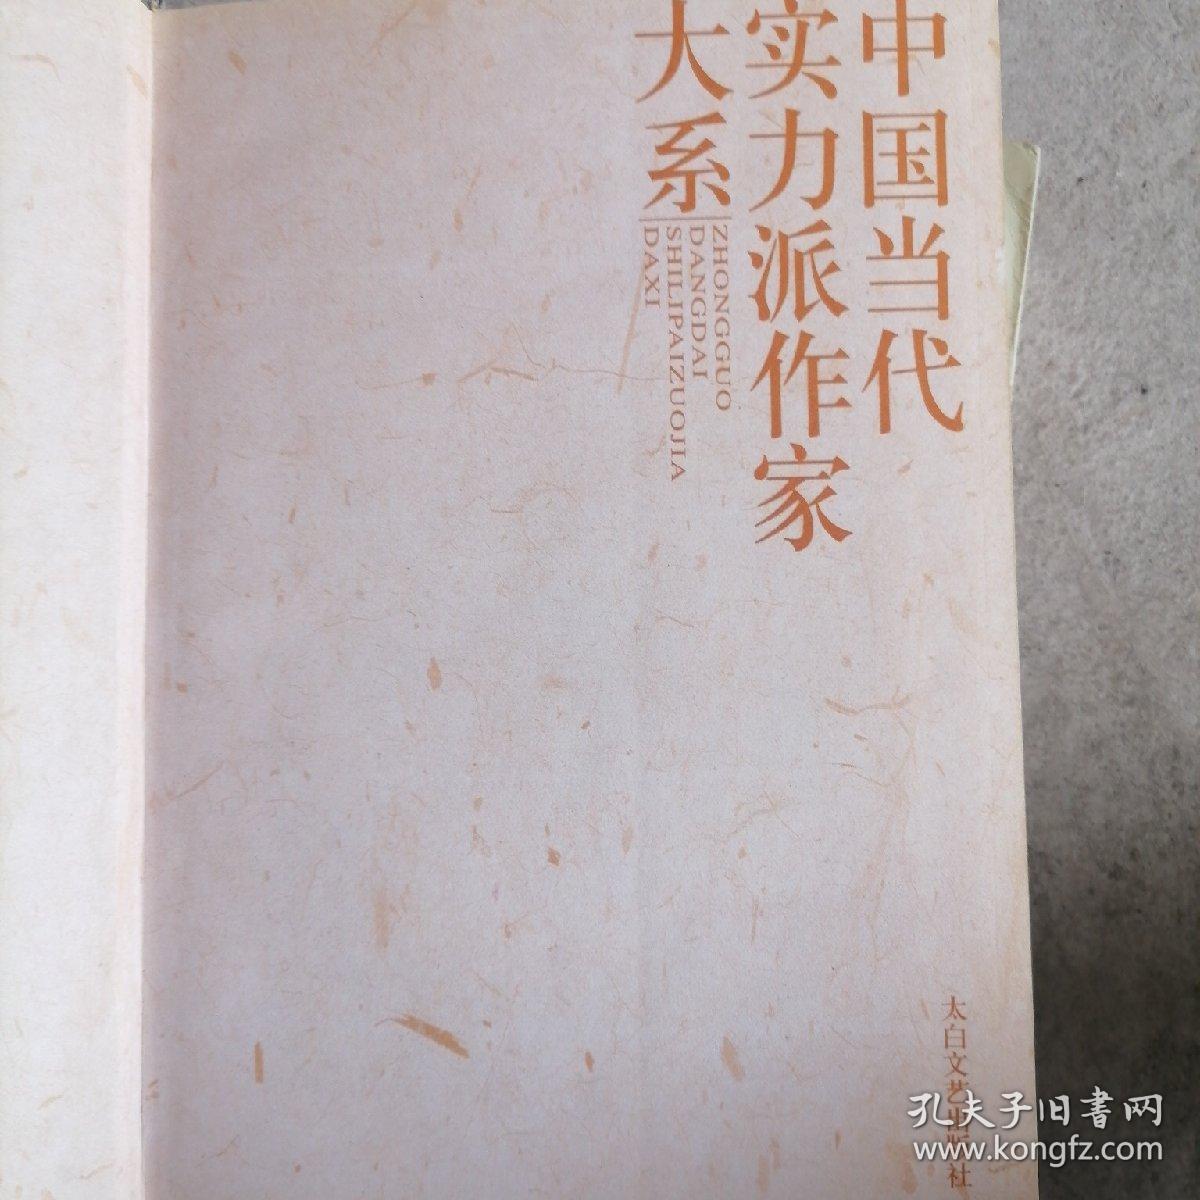 中国当代
实力派作家
大系
ZHONGGUO
DANGDAI
SHILIPAIZUOJIA
DAXI
太白文艺出版社
孔夫子旧书网
www.kongfz.com